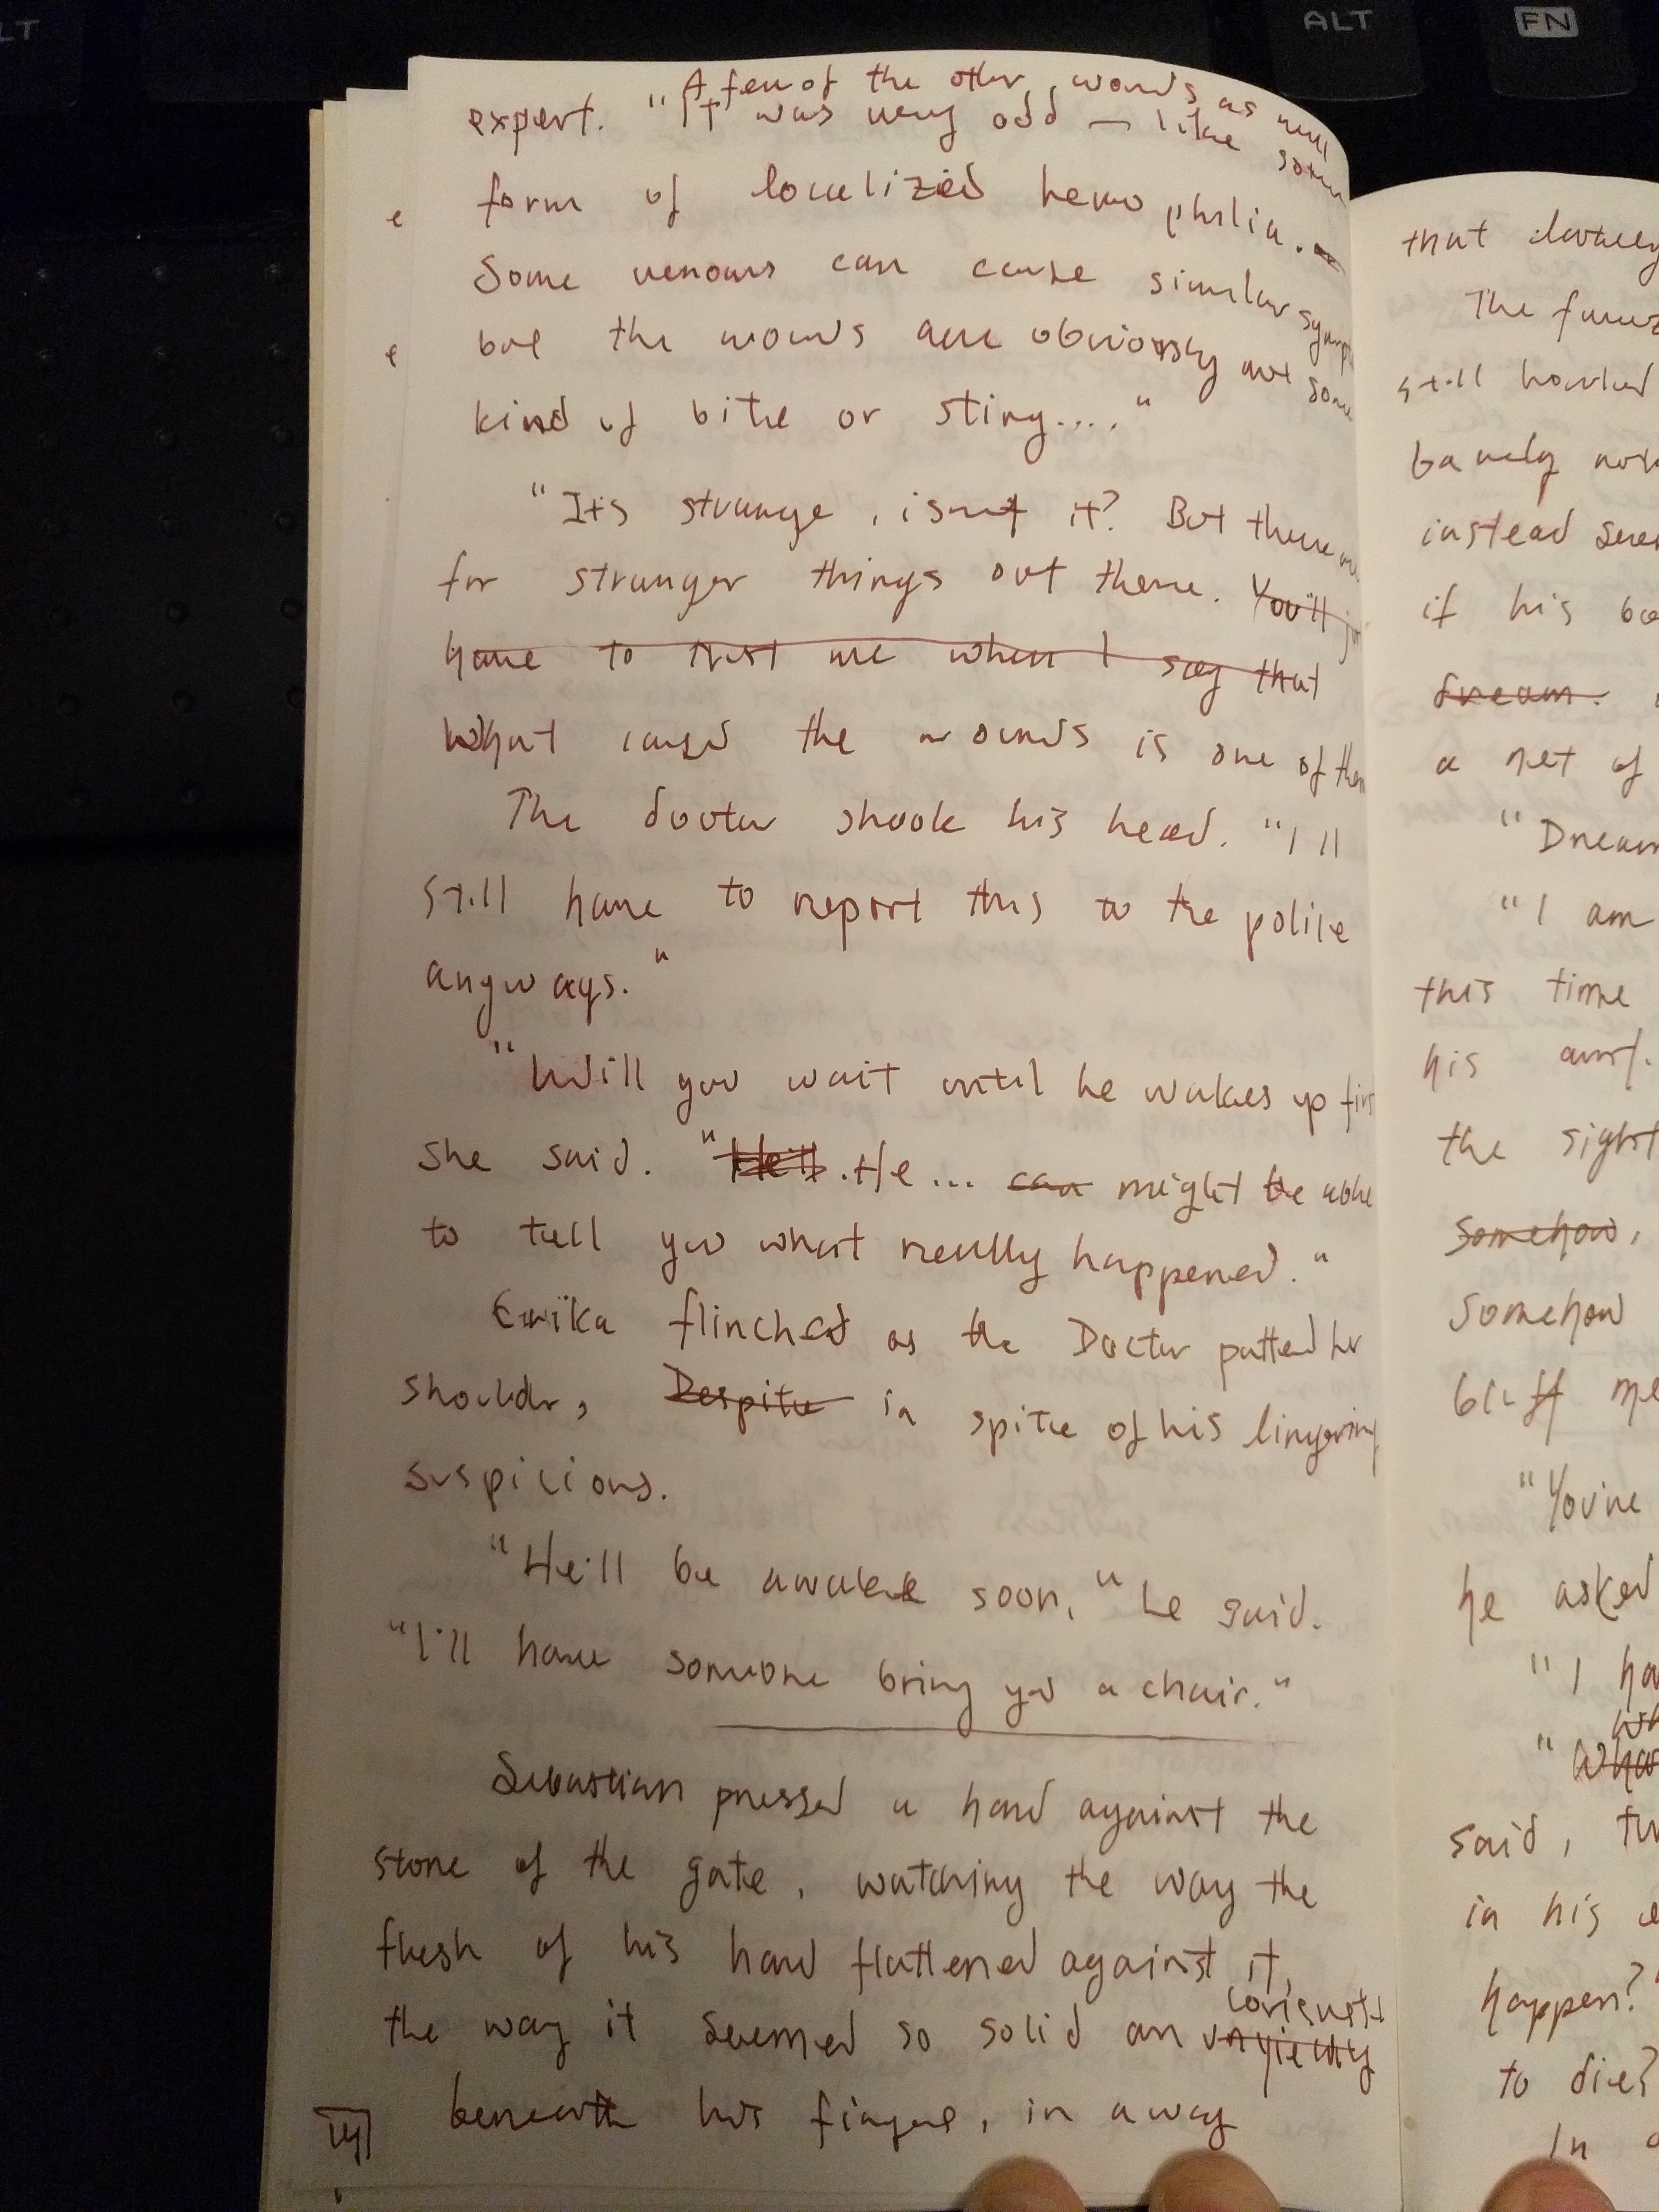 A few of the other wounds as well
expert. "It was very odd — like some
form of localized hemophilia.
Some venoms can cause similar symp
but the wounds are obviously not some
kind of bite or sting...."
"Its strange, isn't it? But there are
far stranger things out there. You'll
have to trust me when I say that
What caused the wounds is one of them
The doctor shook his head. "I'll
still have to report this to the police
anyways."
"Will you wait until he wakes up first
she said. "He'll He... can might be able
to tell you what really happened."
Erika flinched as the Doctor patted her
shoulder, Despite in spite of his lingering
suspicions.
"He'll be awake soon," he said.
"I'll have someone bring you a chair."
Sebastian pressed a hand against the
stone of the gate, watching the way the
flesh of his hand flattened against it,
the way it seemed so solid an unyielding
beneath his fingers, in a way
that
The
still
barely
instead
if his
dream.
a net of
"Dream
"I am
this time
his aunt.
the sight
Somehow,
Somehow
bluff me
"You're
he asked
"I ha
"Wha
said, tu
in his e
happen?
to die?
In
ALT
FN
LT